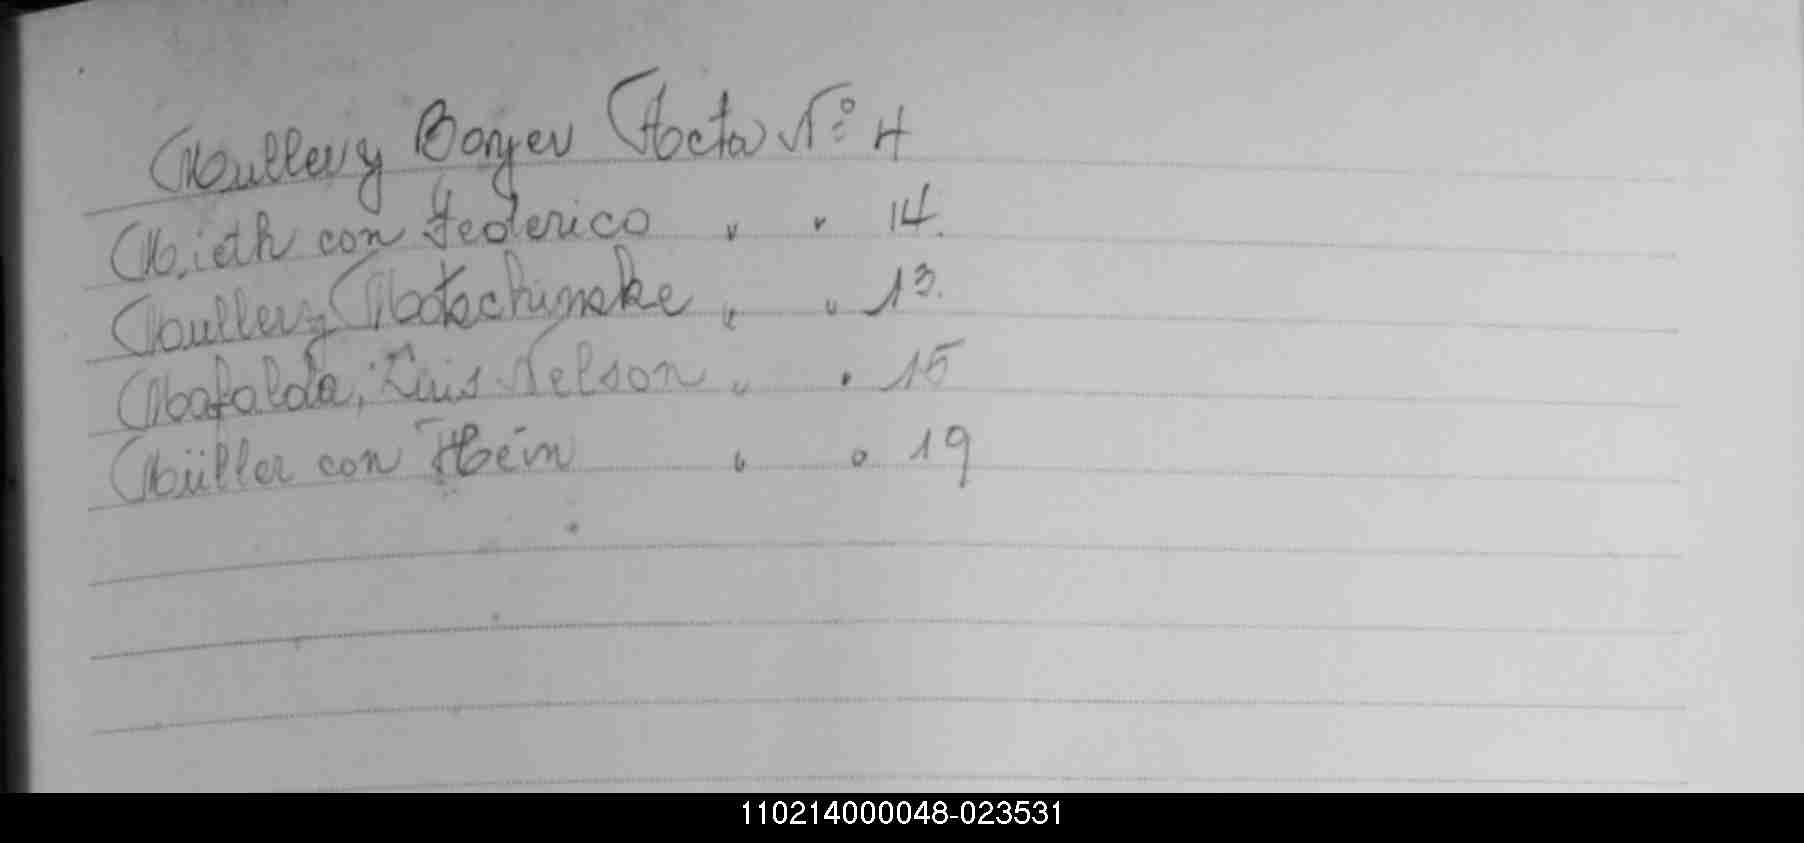 Muller y Bonjer Acta Nº 4
Mieth con Federico " " 14.
Muller y Motschinske " " 13.
Mafalda, Luis Nelson " " 15
Müller con Hein " " 19
110214000048-023531